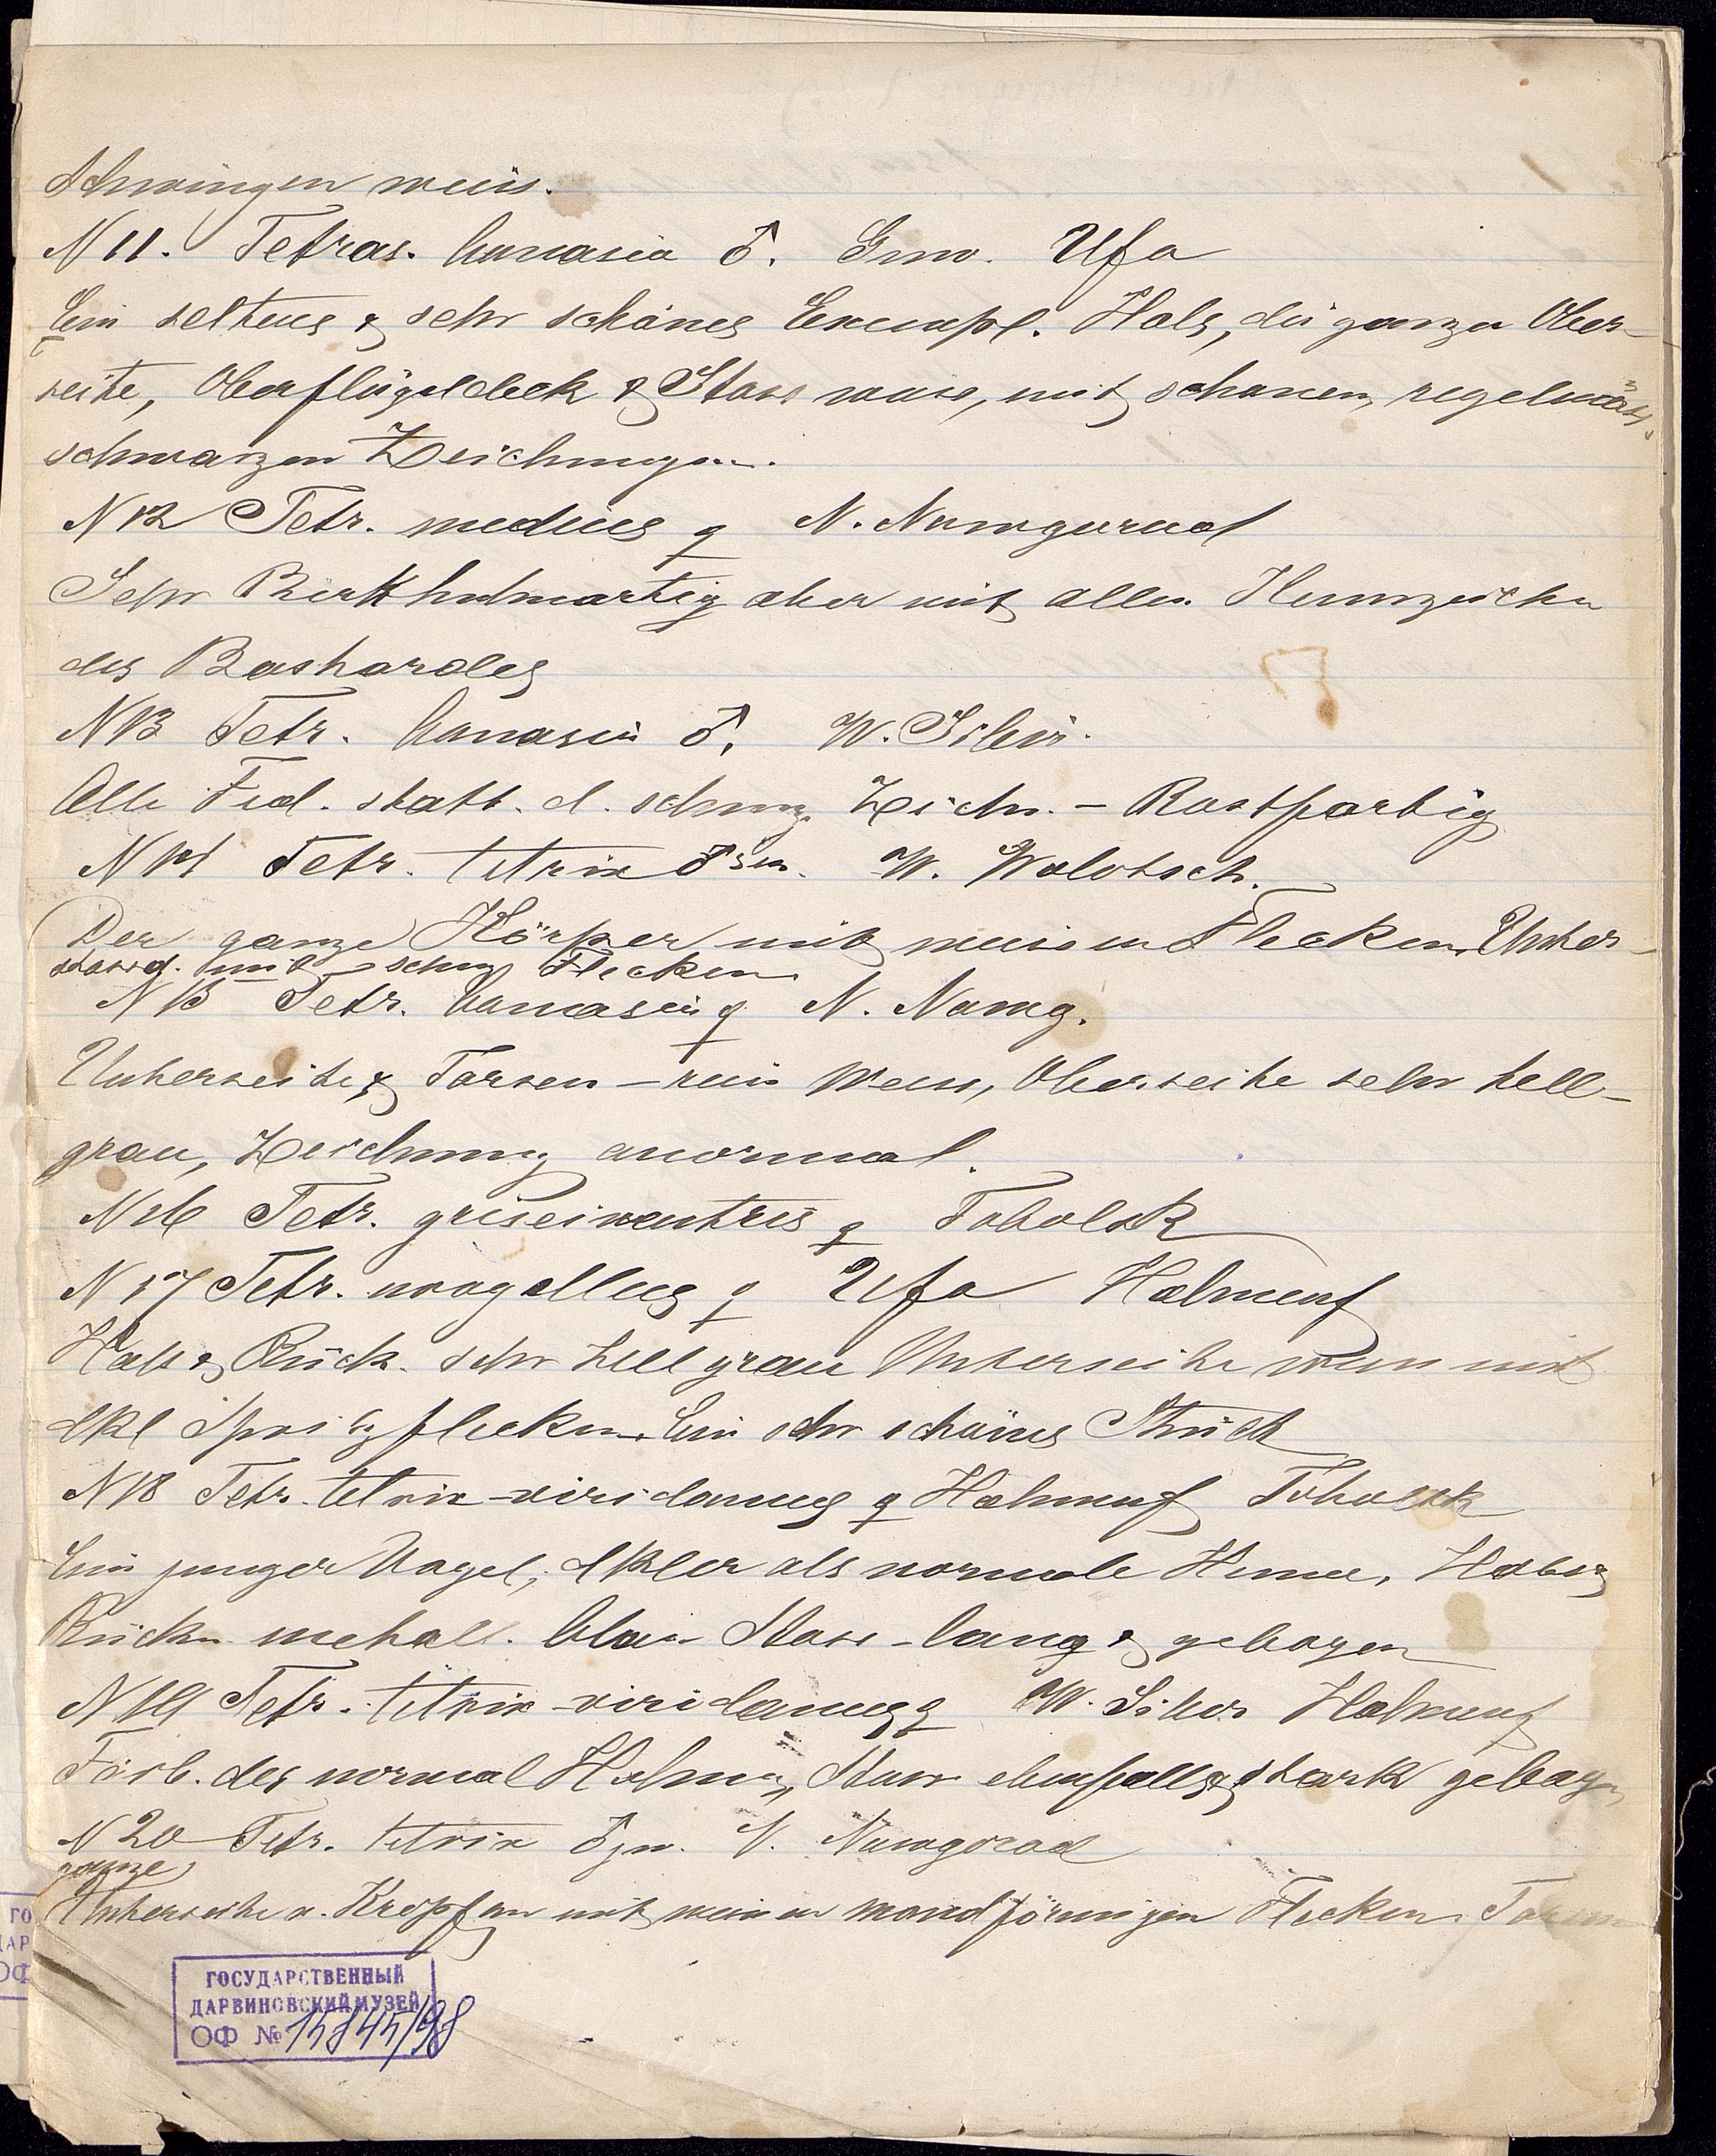 Schwingen weiss.
N 11. Tetras. bonasia ♂. Gouv. Ufa
Ein seltenes & sehr schönes Exempl. Hals, die ganze Ober-
seite, Oberflügeldeck & Stoss weiss, mit schönen, regelmäss.
schwarzen Zeichnungen.
N 12 Tetr. medius ♀ N. Nowgorod
Sehr Birkhuhnartig aber mit allen Kennzeichen
des Bashardes
N 13 Tetr. bonasia ♂. W. Sibir.
Alle Fed. statt. d. schwz. Zeichn. - Rostfarbig
N 14 Tetr. tetrix ♂ sen. W. Wolotsch.
Der ganze Körper mit weissen Flecken. Unter-
stossd. mit schwz Flecken
N 15 Tetr. bonasia ♀ N. Nowg.
Unterseite & Tarsen - rein weiss, Oberseite sehr hell-
grau, Zeichnung anormal.
N 16 Tetr. griseiventris ♀ Tobolsk
N 17 Tetr. urogallus ♀ Ufa Hahnenf
Hals & Rück. sehr hellgrau Unterseite weiss mit
dkl Spritzflecken. Ein sehr schönes Stück
N 18 Tetr. tetrix-viridanus ♀ Hahnenf Tobolsk
Ein junger Vogel, dkler als normale Henne, Hals &
Rücken metall. blau Stoss - lang & gebogen
N 19 Tetr. tetrix-viridanus ♀ W. Sibir Hahnenf
Färb. der normal Hahnen, Stoss ebenfalls stark gebogen
N 20 Tetr. tetrix ♂ jun. N. Nowgorod
ganze
Unterseite u. Kropf mit weissen mondförmigen Flecken. Tarsen
ГОСУДАРСТВЕННЫЙ
ДАРВИНОВСКИЙ МУЗЕЙ
ОФ № 15845/98